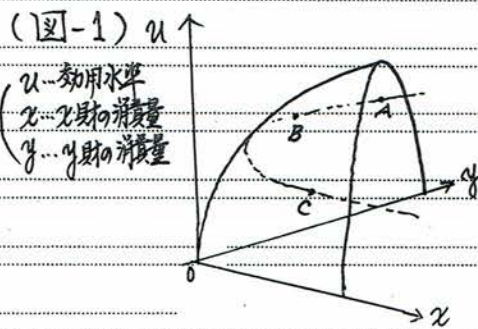 (図-1) u
u…効用水準
x…x財の消費量
y…y財の消費量
A
B
C
y
0
x